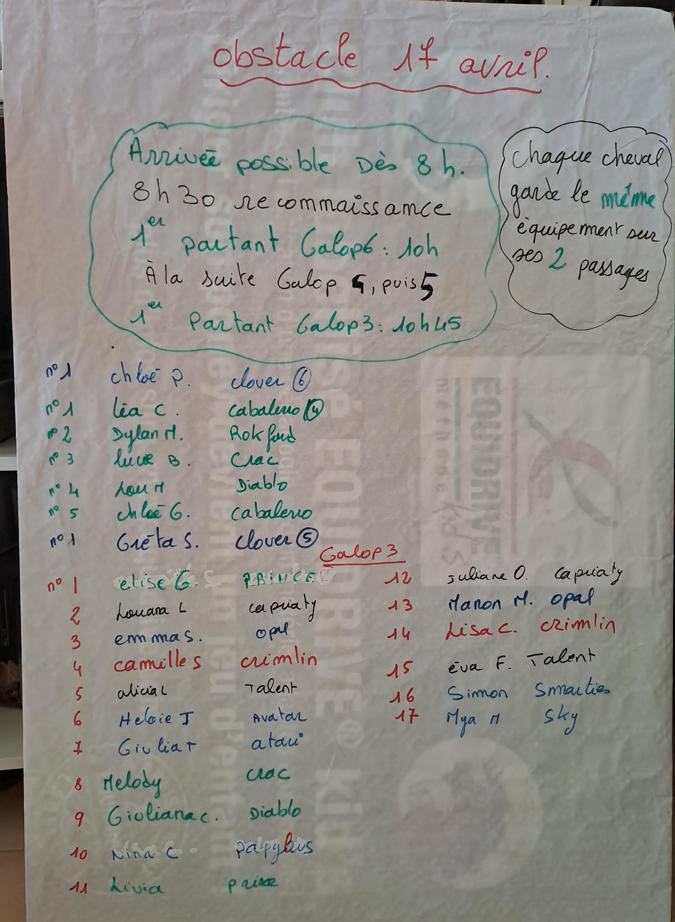 obstacle 17 avril.
Arrivée possible Dès 8 h.
8 h 30 reconnaissance
1er partant Galop6 : 10h
À la suite Galop 4, puis 5
1er Partant Galop3 : 10h45
chaque cheval
garde le même
équipement sur
ses 2 passages
n°1 chloé P. clover 6
n°1 léa C. cabalero 4
n°2 Dylan M. Rokford
n°3 lucie B. Crac
n°4 Lou M Diablo
n°5 chloé G. cabalero
n°1 Gréta S. clover 5
Galop 3
n°1 elise G. PRINCE
2 Louana L capriaty
3 emma S. opal
4 camille S crimlin
5 alicia L Talent
6 Heloie J Avatar
7 Giulia T
8 Melody crac
9 Giuliana C. Diablo
10 Nina C papylus
11 Livia
12 Juliane O. capriaty
13 Manon M. opal
14 Lisa C. crimlin
15 éva F. Talent
16 Simon Smarties
17 Mya M Sky
EQUIDRIVE